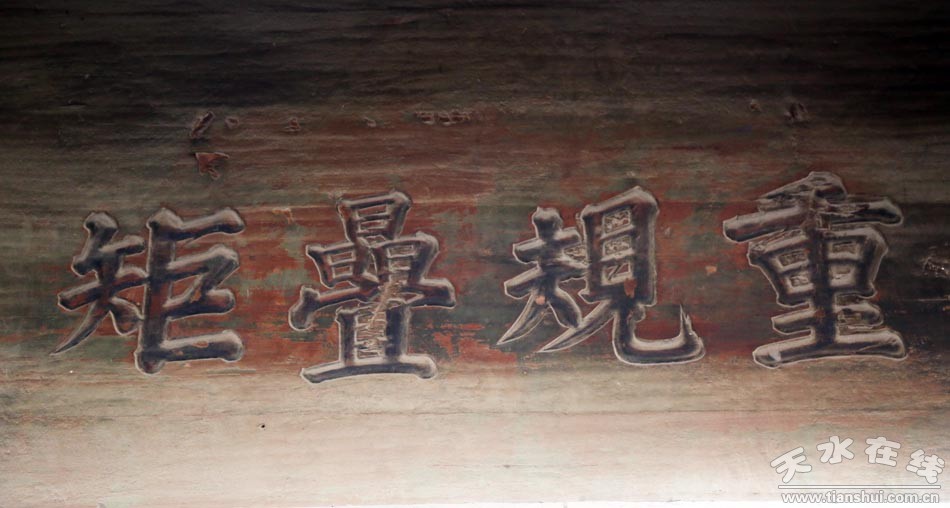 重規疊矩
天水在线
www.tianshui.com.cn